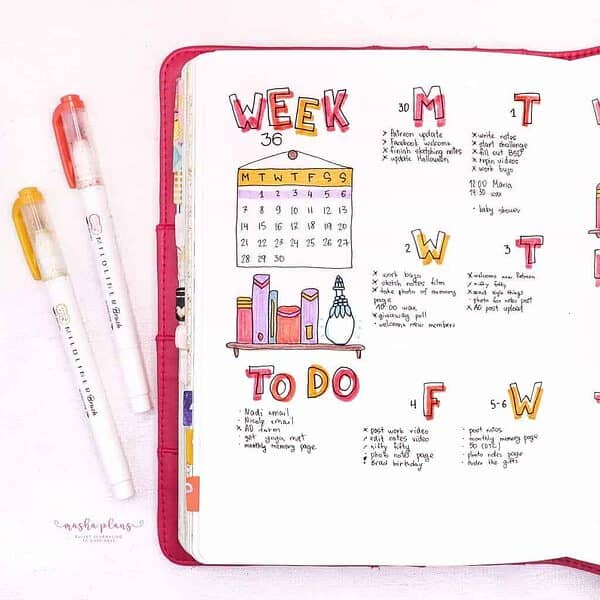 WEEK
36
M T W T F S S
1 2 3 4 5 6
7 8 9 10 11 12 13
14 15 16 17 18 19 20
21 22 23 24 25 26 27
28 29 30
TO DO
Nadi email
Nicole email
AD farm
get yoga mat
monthly memory page
30 M
Patreon update
Facebook welcome
finish sketching notes
update Halloween
1 T
write notes
start challenge
fill out BSD
repin videos
work bujo
12:00 Maria
14:30 wax
baby shower
2 W
work bujo
sketch notes film
take photo of memory
page
10:00 wax
giveaway poll
welcome new members
3 T
welcome new Patreon
nifty fifty
send style things
photo for notes post
AD post upload
4 F
post work video
edit notes video
nifty fifty
photo notes page
Brad birthday
5-6 W
post notes
monthly memory page
SO (DTC)
photo notes page
order the gifts
MILDLINER Brush
MILDLINER Brush
masha plans
BULLET JOURNALING